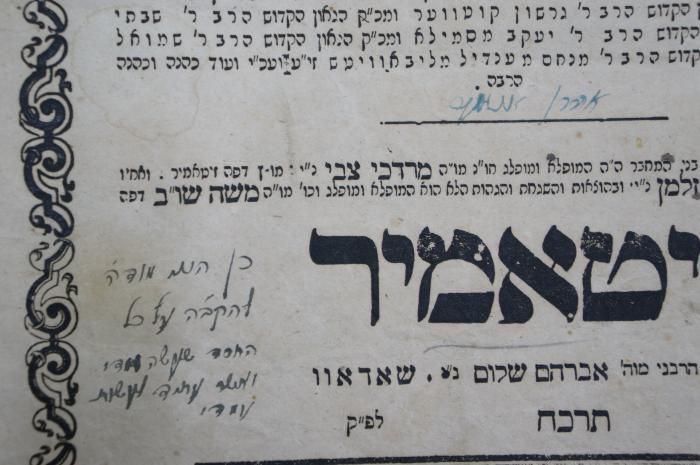 הקדוש הרב ר' גרשון קוטווער ומכ״ק הגאון הקדוש הרב ר' שבתי
הקדוש הרב ר' יעקב מסמילא ומכ״ק הגאון הקדוש הרב ר' שמואל
קדוש הרב ר' מנחם מענדיל מליבאוויטש זי״ע ועכ״י ועוד כהנה וכהנה
הרבה
אהרן
בני המחבר ה״ה המופלא ומופלג חו״נ מו״ה מרדכי צבי נ״י מו״ץ דפה זיטאמיר . ואחיו
זלמן נ״י ובהוצאות והשגחת והגהות הלא הוא המופלא ומופלג וכו' מו״ה משה שו״ב דפה
יטאמיר
הרבני מוה' אברהם שלום נ״י . שאדאוו
תרכח לפ״ק
כן הנני מודה
להקב״ה על כל
החסד שעשה עמדי
ואשר עתיד לעשות
עמדי